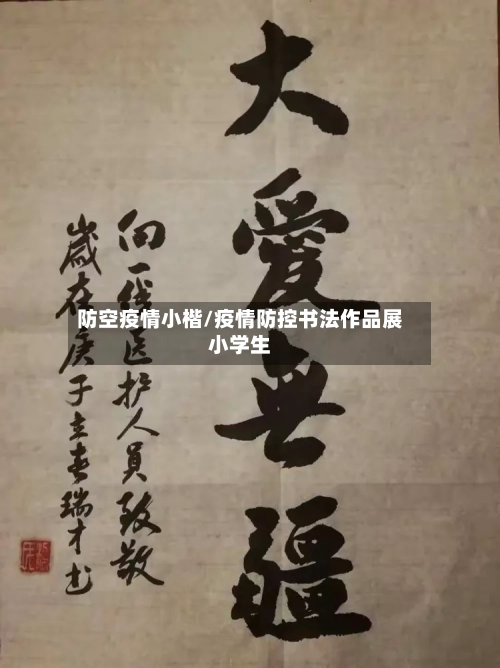 大愛無疆
向一线医护人員致敬
歲在庚子立春瑞才书
防空疫情小楷/疫情防控书法作品展
小学生